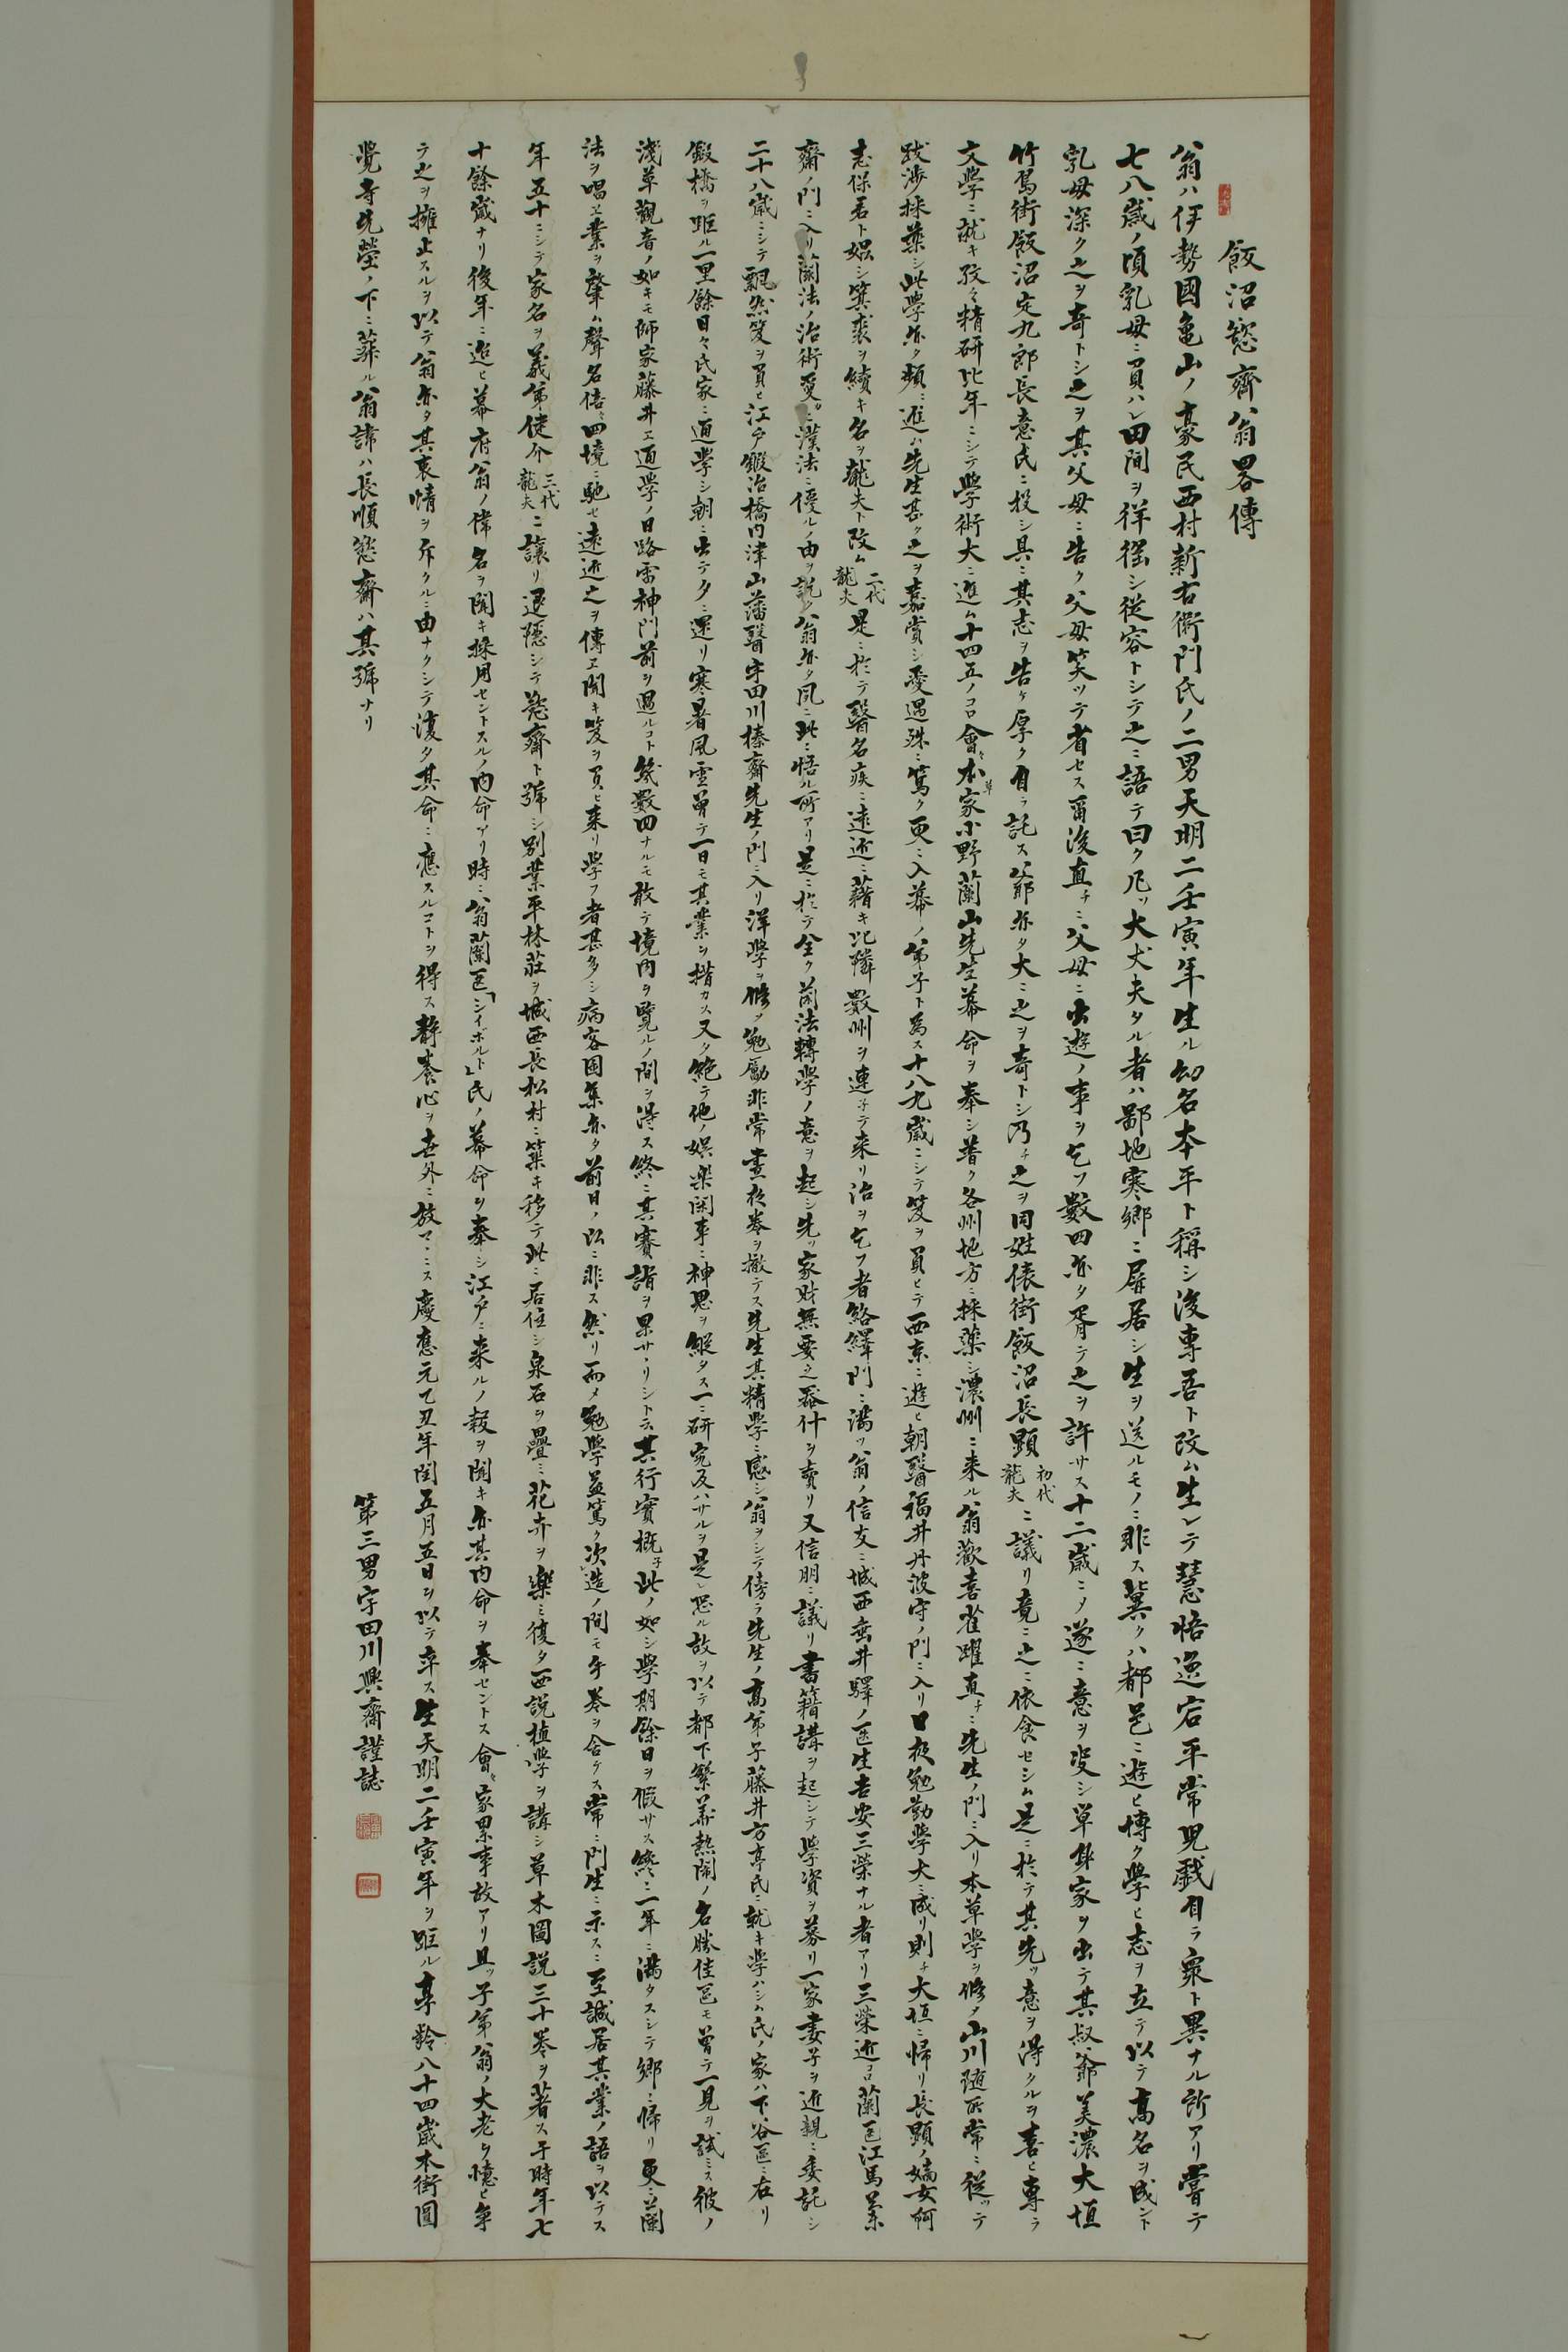 飯沼慾齋翁畧傳
翁ハ伊勢國亀山ノ豪民西村新右衛門氏ノ二男天明二壬寅年生ル幼名本平ト稱シ後專吾ト改ム生レテ慧悟逸宕平常児戯自ラ衆ト異ナル所アリ嘗テ
七八歳ノ頃乳母ニ負ハレ田間ヲ徉徭シ従容トシテ之ニ語テ曰ク凡ソ大丈夫タル者ハ鄙地寒郷ニ屏居シ生ヲ送ルモノニ非ス冀クハ都邑ニ遊ヒ博ク學ヒ志ヲ立テ以テ髙名ヲ成ント
乳母深ク之ヲ奇トシ之ヲ其父母ニ告ク父母笑ツテ省セス爾後直チニ父母ニ出遊ノ事ヲ乞フ數四亦タ肯テ之ヲ許サス十二歳ニノ遂ニ意ヲ决シ単身家ヲ出テ其叔爺美濃大垣
竹嶌街飯沼定九郎長意氏ニ投シ具ニ其志ヲ告ケ厚ク自ラ託ス爺亦タ大ニ之ヲ奇トシ乃チ之ヲ同姓俵街飯沼長顕初代龍夫ニ議リ竟ニ之ニ依食セシム是ニ於テ其先ツ意ヲ得タルヲ喜ヒ專ラ
文學ニ就キ孜々精研比年ニシテ學術大ニ進ム十四五ノコロ會々本草家小野蘭山先生幕命ヲ奉シ普ク各州地方ニ採薬シ濃州ニ来ル翁歡喜雀躍直チニ先生ノ門ニ入リ本草學ヲ修メ山川随所常ニ從ツテ
跋渉採藥シ此學亦タ頻ニ進ム先生甚タ之ヲ嘉賞シ愛遇殊ニ篤ク更ニ入幕ノ弟子ト為ス十八九歳ニシテ笈ヲ負ヒテ西京ニ遊ヒ朝醫福井丹波守ノ門ニ入リ日夜勉勤學大ニ成リ則チ大垣ニ帰リ長顕ノ嫡女阿
志保君ト娯シ箕裘ヲ續キ名ヲ龍夫ト改ム二代龍夫是ニ於テ醫名疾ニ遠近ニ藉キ比隣數州ヲ連子テ来リ治ヲ乞フ者絡繹門ニ満ツ翁ノ信友ニ城西垂井驛ノ医生吉安三榮ナル者アリ三榮近コロ蘭医江馬
齋ノ門ニ入リ蘭法ノ治術漢法ニ優ルノ由ヲ説ク翁亦タ夙ニ此ニ悟ル所アリ是ニ於テ全ク蘭法轉學ノ意ヲ起シ先ツ家財無要之器什ヲ賣リ又信朋ニ議リ書籍講ヲ起シテ學資ヲ募リ一家妻子ヲ近親ニ委託シ
二十八歳ニシテ飄然笈ヲ負ヒ江戸鍛冶橋内津山藩醫宇田川榛齋先生ノ門ニ入リ洋學ヲ修メ勉勵非常晝夜巻ヲ撤テス先生其精學ニ感シ翁ヲシテ傍ラ先生ノ髙弟子藤井方亭氏ニ就キ學ハシム氏ノ家ハ下谷區ニ右リ
鍜橋ヲ距ル一里餘日々氏家ニ通學シ朝ニ出テタニ還リ寒暑風雪曽テ一日モ其業ヲ措カス又タ絶テ他ノ娯楽閑事ニ神思ヲ縦タス一ニ研究及ハサルヲ是レ恐ル故ヲ以テ都下繁華熱閙ノ名勝佳區モ曽テ一見ヲ試ミス彼ノ
淺草觀音ノ如キモ師家藤井エ通學ノ日路雷神門前ヲ過ルコト幾數四ナルモ敢テ境内ヲ覽ルノ間ヲ得ス終ニ其賽詣ヲ果サゝリシト云其行實概子此ノ如シ學期餘日ヲ假サス纔ニ一年ニ満タスシテ郷ニ帰リ更ニ蘭
法ヲ唱エ業ヲ肇ム聲名倍々四境ニ馳セ遠近之ヲ傳エ聞キ笈ヲ負ヒ来リ學フ者甚多シ病客囲集亦タ前日ノ以ニ非ス然リ而メ勉學益篤ク次造ノ間モ手巻ヲ舎テス常ニ門生ニ示スニ至誠居其業ノ語ヲ以テス
年五十ニシテ家名ヲ義弟健介三代龍夫ニ讓リ退隱シテ慾齋ト號シ別業平林莊ヲ城西長松村ニ築キ移テ此ニ居住シ泉石ヲ疊ミ花卉ヲ樂ミ復タ西説植學ヲ講シ草木圖説三十巻ヲ著ス于時年七
十餘歳ナリ後年ニ迨ヒ幕府翁ノ偉名ヲ聞キ採用セントスルノ内命アリ時ニ翁蘭医「シイボルト」氏ノ幕命ヲ奉シ江戸ニ来ルノ報ヲ聞キ亦其内命ヲ奉セントス會々家累事故アリ且ツ子弟翁ノ大老ヲ憶ヒ爭
テ之ヲ擁止スルヲ以テ翁亦タ其衷情ヲ斥クルニ由ナクシテ復タ其命ニ應スルコトヲ得ス靜養心ヲ世外ニ放マヽニス慶應元乙丑年閏五月五日ヲ以テ卒ス生天明二壬寅年ヲ距ル享齡八十四歳本街圓
覺寺先塋ノ下ニ葬ル翁諱ハ長順慾齋ハ其號ナリ
第三男宇田川興齋謹誌